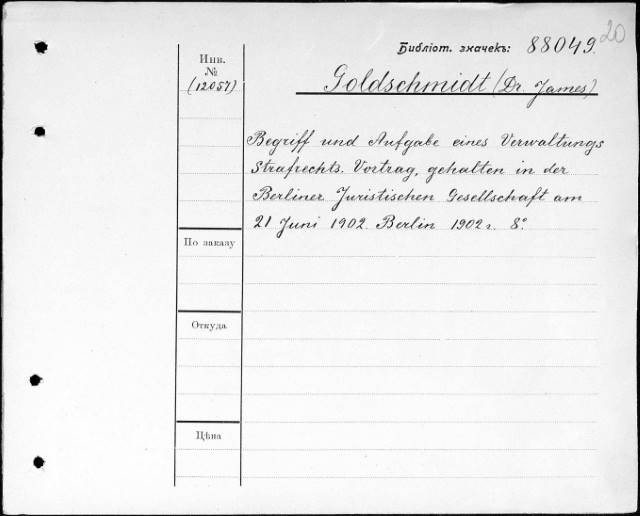 20
Библіот. значекъ: 88049.
Инв.
№
(12057)
Goldschmidt (Dr. James)
Begriff und Aufgabe eines Verwaltungs
Strafrechts. Vortrag, gehalten in der
Berliner Juristischen Gesellschaft am
21 Juni 1902. Berlin 1902 г. 8°.
По заказу
Откуда
Цѣна